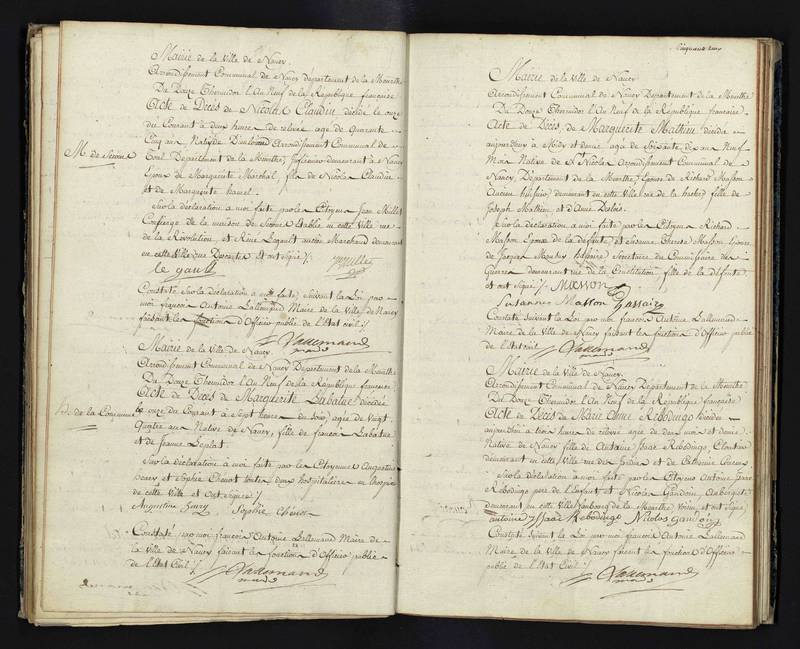 Mairie de la Ville de Nancy
Arrondissement Communal de Nancy Département de la Meurthe
Du Douze Thermidor l'An Neuf de la République française
Acte de Décès de Nicolas Claudin décédé le onze
du Courant à deux heures de relevée agé de quarante
Cinq ans Natif de Arrondissement Communal de
M. de Secours
Toul Département de la Meurthe demeurant à Nancy
Epoux de Marguerite Marchal, fils de Nicolas Claudin
et de Marguerite hanel.
Sur la déclaration à moi faite par les Citoyens Jean Millet
Concierge de la maison de Secours Etablie en cette Ville rue
de la Révolution, et Legault ancien Marchand demeurant
en cette Ville rue et ont signé ./.
le gault
J millet
Constaté Sur la déclaration à moi faite, Suivant la Loi par
moi françois Antoine Lallemand Maire de la Ville de Nancy
faisant les fonctions d'Officier public de l'Etat Civil ./.
Lallemand
maire
Mairie de la Ville de Nancy
Arrondissement Communal de Nancy Département de la Meurthe
Du Douze Thermidor l'An Neuf de la République française
Acte de Décès de Marguerite Labatue décédée
de la Commune
le onze du Courant à Sept heures du Soir, agée de Vingt
Quatre ans Native de Nancy, fille de françois Labatue
et de Jeanne Leplat.
Sur la déclaration à moi faite par les Citoyennes Augustine
henry et Sophie Chenot toutes deux hospitalières en
de cette Ville et ont signées ./.
Augustine henry Sophie Chénot
Constaté par moi françois Antoine Lallemand Maire de
la Ville de Nancy faisant les fonctions d'Officier public
de l'Etat Civil ./.
Lallemand
maire
Cinquante
Mairie de la Ville de Nancy
Arrondissement Communal de Nancy Département de la Meurthe
Du Douze Thermidor l'An Neuf de la République française.
Acte de Décès, de Marguerite Mathieu décédée
aujourdhuy à Midy et demie agée de Soixante dix ans Neuf
Mois Native de St Nicolas Arrondissement Communal de
Nancy, Département de la Meurthe, Epouse de Richard Masson
Ancien huissier, demeurant en cette Ville rue de la hache, fille de
Joseph Mathieu et d'Anne
Sur la déclaration à moi faite par les Citoyens Richard
Masson Epoux de la défunte, et Susanne Therese Masson
de Jacques Secrétaire du Commissaire des
Guerres demeurant rue de la Constitution, fille de la défunte,
et ont Signé ./. MASSON
Susanne Masson
Constaté suivant la Loi par moi françois Antoine Lallemand
Maire de la Ville de Nancy faisant les fonctions d'Officier public
de l'Etat civil ./. Lallemand
maire
Mairie de la Ville de Nancy.
Arrondissement Communal de Nancy Département de la Meurthe
Du Douze Thermidor l'An Neuf de la République française
Acte de Décès de Marie Anne Rebodingo décédée
aujourdhui à trois heures de relevée agée de deux mois et demie
Native de Nancy fille de Antoine Isaac Rebodingo, Cloutier
demeurant en cette Ville rue des et de Catherine
Sur la déclaration à moi faite par les Citoyens Antoine Isaac
Rebodingo père de l'Enfant et Nicolas Gandoin Aubergiste
demeurant en cette Ville faubourg de la Meurthe et ont signé
antoine Isaac Rebodingo Nicolas Gandoin
Constaté suivant la Loi par moi françois Antoine Lallemand
Maire de la Ville de Nancy faisant les fonctions d'Officier
public de l'Etat Civil ./.
Lallemand
maire